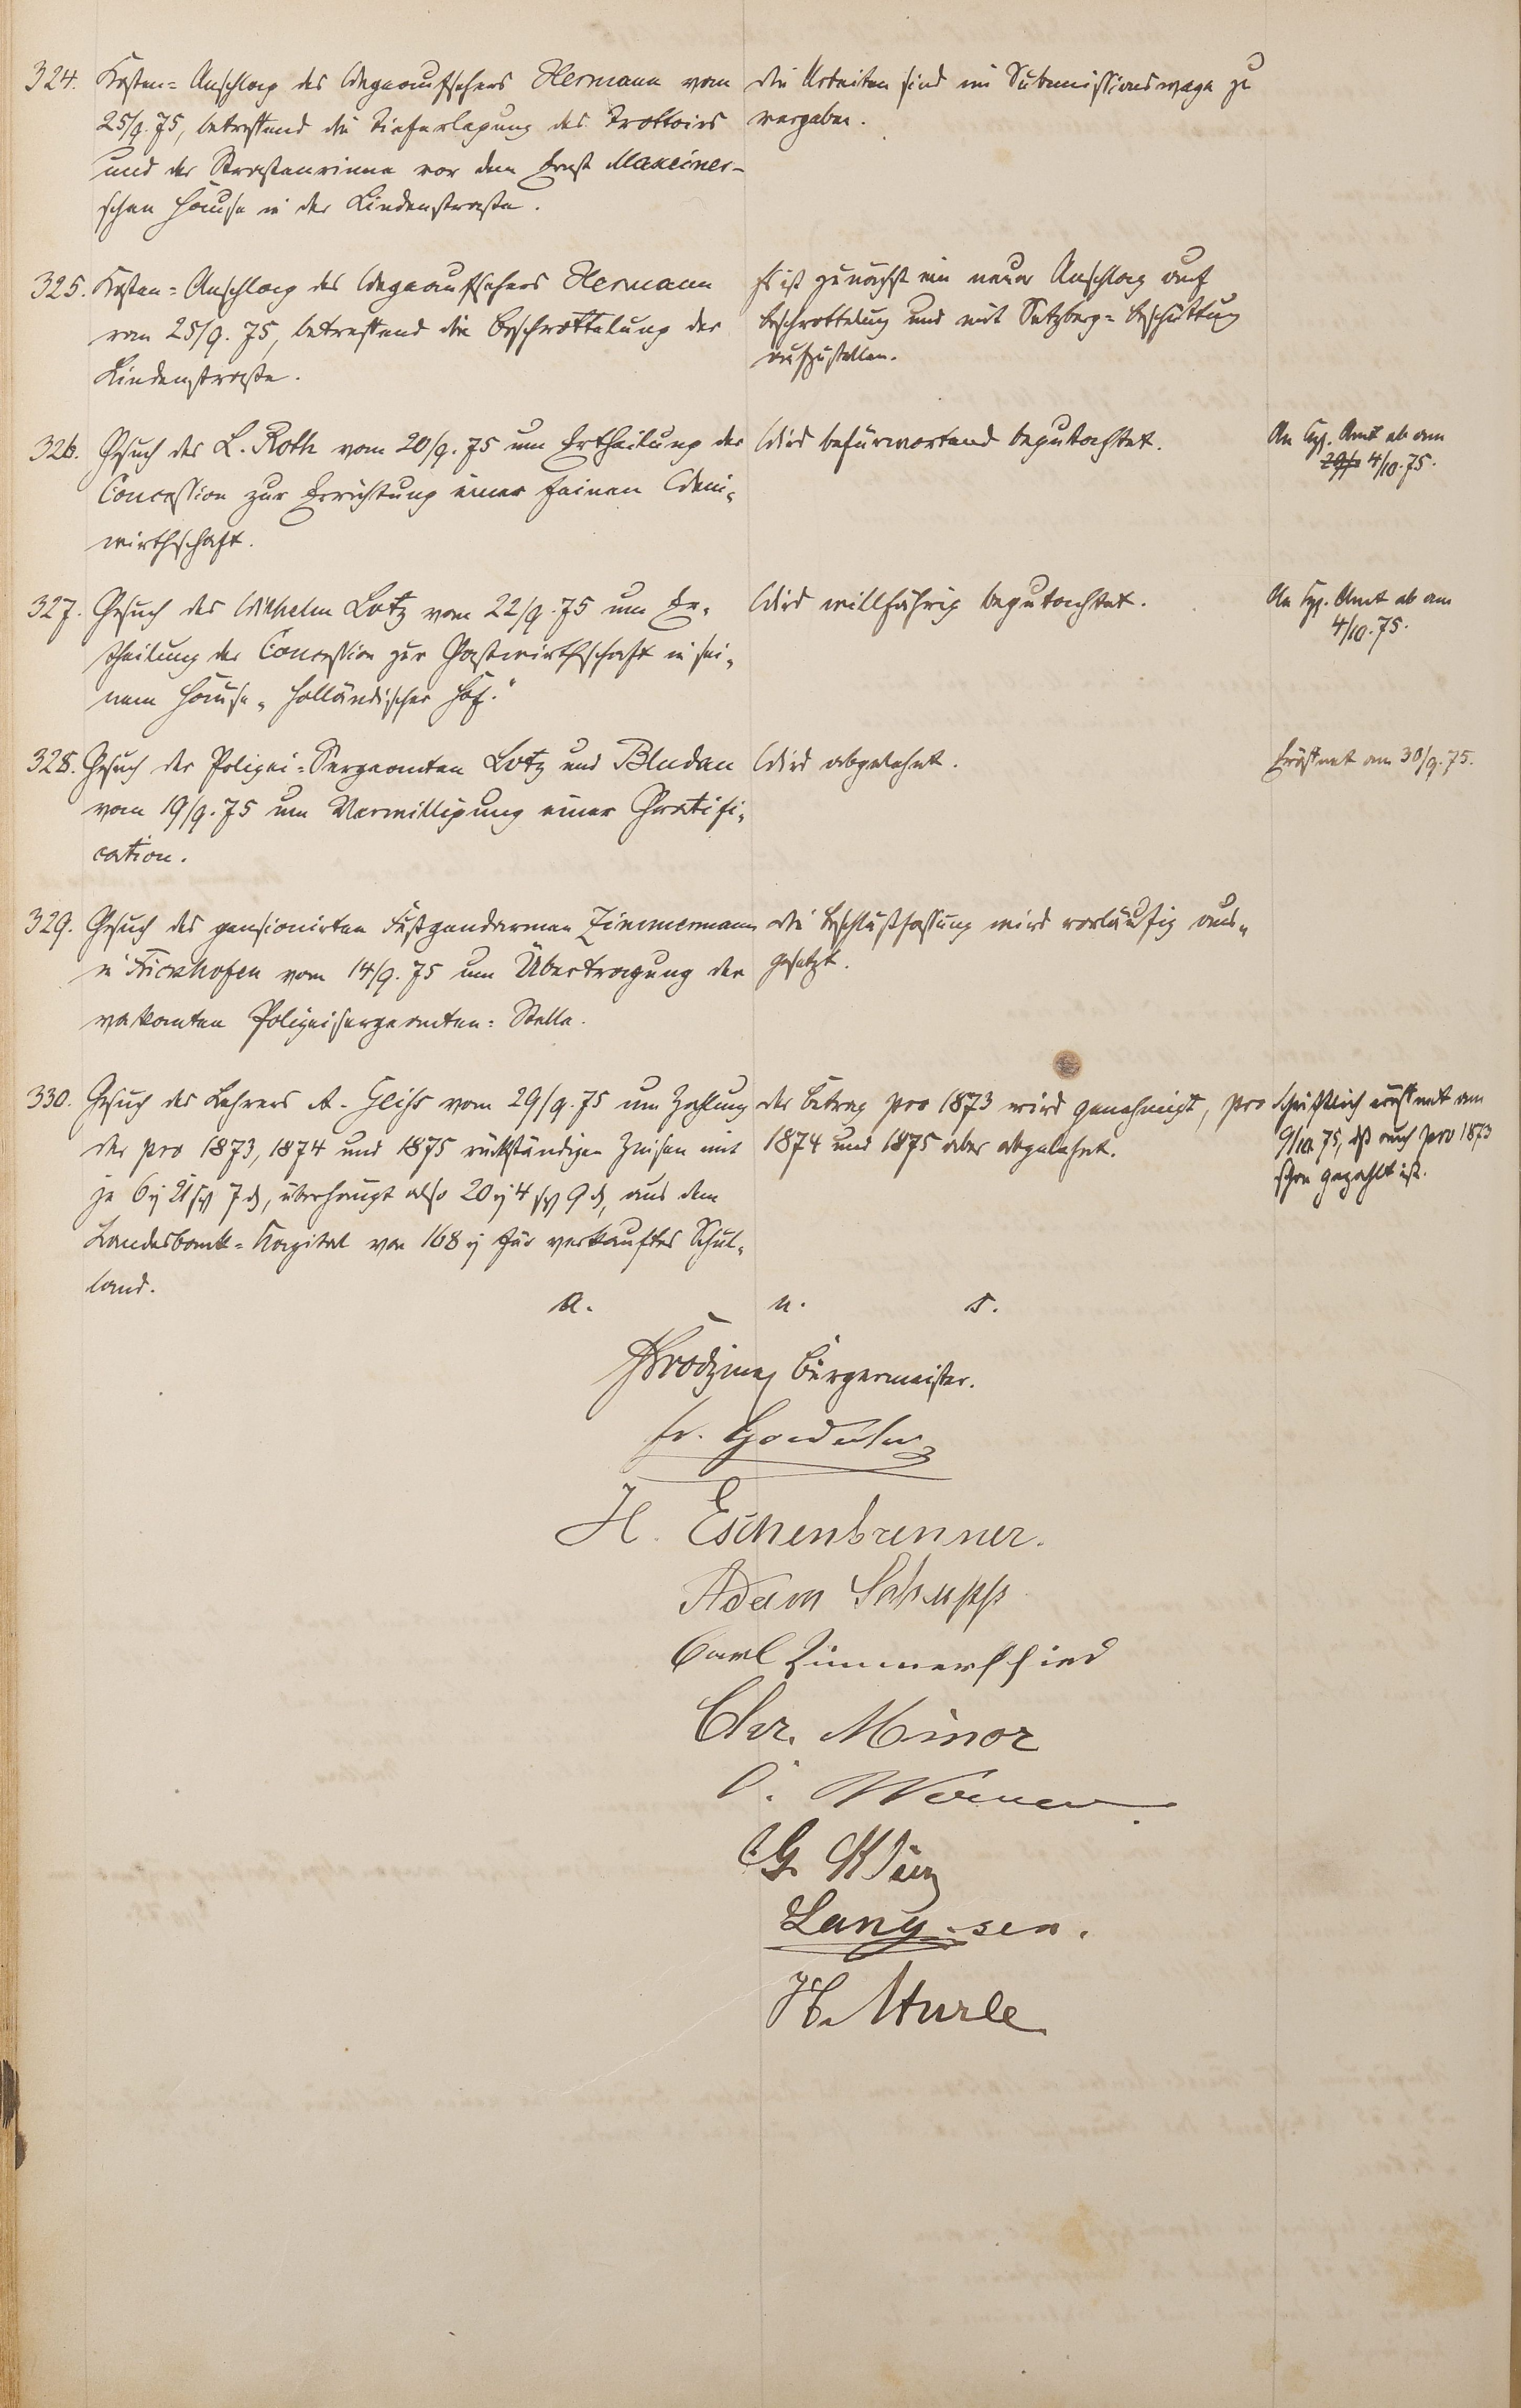 324. Kosten-Anschlag des Wegeaufsehers Hermann vom
25/9. 75, betreffend die Tieferlegung des Trottoirs
und der Straßenrinne vor dem Ernst Maxeiner-
schen Hause in der Lindenstraße.
Die Arbeiten sind im Submissionswege zu
vergeben.
325. Kosten-Anschlag des Wegeaufsehers Hermann
vom 25/9. 75, betreffend die Beschrottelung der
Lindenstraße.
Es ist zunächst ein neuer Anschlag auf
Beschrottelung und mit Satzberg-Beschüttung
aufzustellen.
326. Gesuch des L. Roth vom 20/9. 75 um Ertheilung der
Concession zur Errichtung einer feinen Wein-
wirthschaft.
Wird befürwortend begutachtet.
An Kgl. Amt ab am
4/10. 75.
327. Gesuch des Wilhelm Lotz vom 22/9. 75 um Er-
theilung der Concession zur Gastwirthschaft in sei-
nem Hause „Holländischer Hof."
Wird willfährig begutachtet.
An Kgl. Amt ab am
4/10. 75.
328. Gesuch der Polizei-Sergeanten Lotz und Bludau
vom 19/9. 75 um Verwilligung einer Gratifi-
cation.
Wird abgelehnt.
Eröffnet am 30/9. 75.
329. Gesuch des pensionirten Fußgendarmen Zimmermann
in Frickhofen vom 14/9. 75 um Übertragung der
vakanten Polizeisergeanten-Stelle.
Die Beschlußfassung wird vorläufig aus-
gesetzt.
330. Gesuch des Lehrers A. vom 29/9. 75 um Zahlung
der pro 1873, 1874 und 1875 rückständigen Zinsen mit
je 6 21 7, überhaupt also 20 4 9, aus dem
Landesbank-Kapital von 168 für verkauftes Schul-
land.
Der Betrag pro 1873 wird genehmigt, pro
1874 und 1875 aber abgelehnt.
Schriftlich eröffnet am
9/10. 75, daß auch pro 1873
schon gezahlt ist.
a. u. s.
Bürgermeister.
Fr.
H. Eschenbrenner.
Adam Schupp
Carl Zimmerschied
Chr. Minor
C. G.
Lang sen.